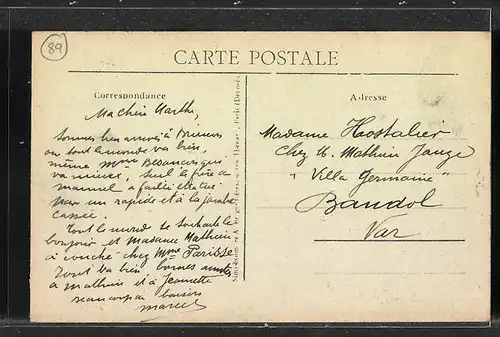 89
CARTE POSTALE
Correspondance
Adresse
Ma chère Marthe,
Sommes bien arrivés à
où tout le monde va bien,
même Mme Besançon qui
va mieux. Seul le père de
manuel a failli être tué
par un rapide et à la jambe
cassée.
Tout le monde te souhaite le
bonjour et Madame Mathieu
a couché chez Mme Parisse
Tout va bien bonnes
à Mathieu et à Jeannette
baisers
Marcel
Madame Hostalier
chez M. Mathieu Jauge
"Villa Germaine"
Bandol
Var